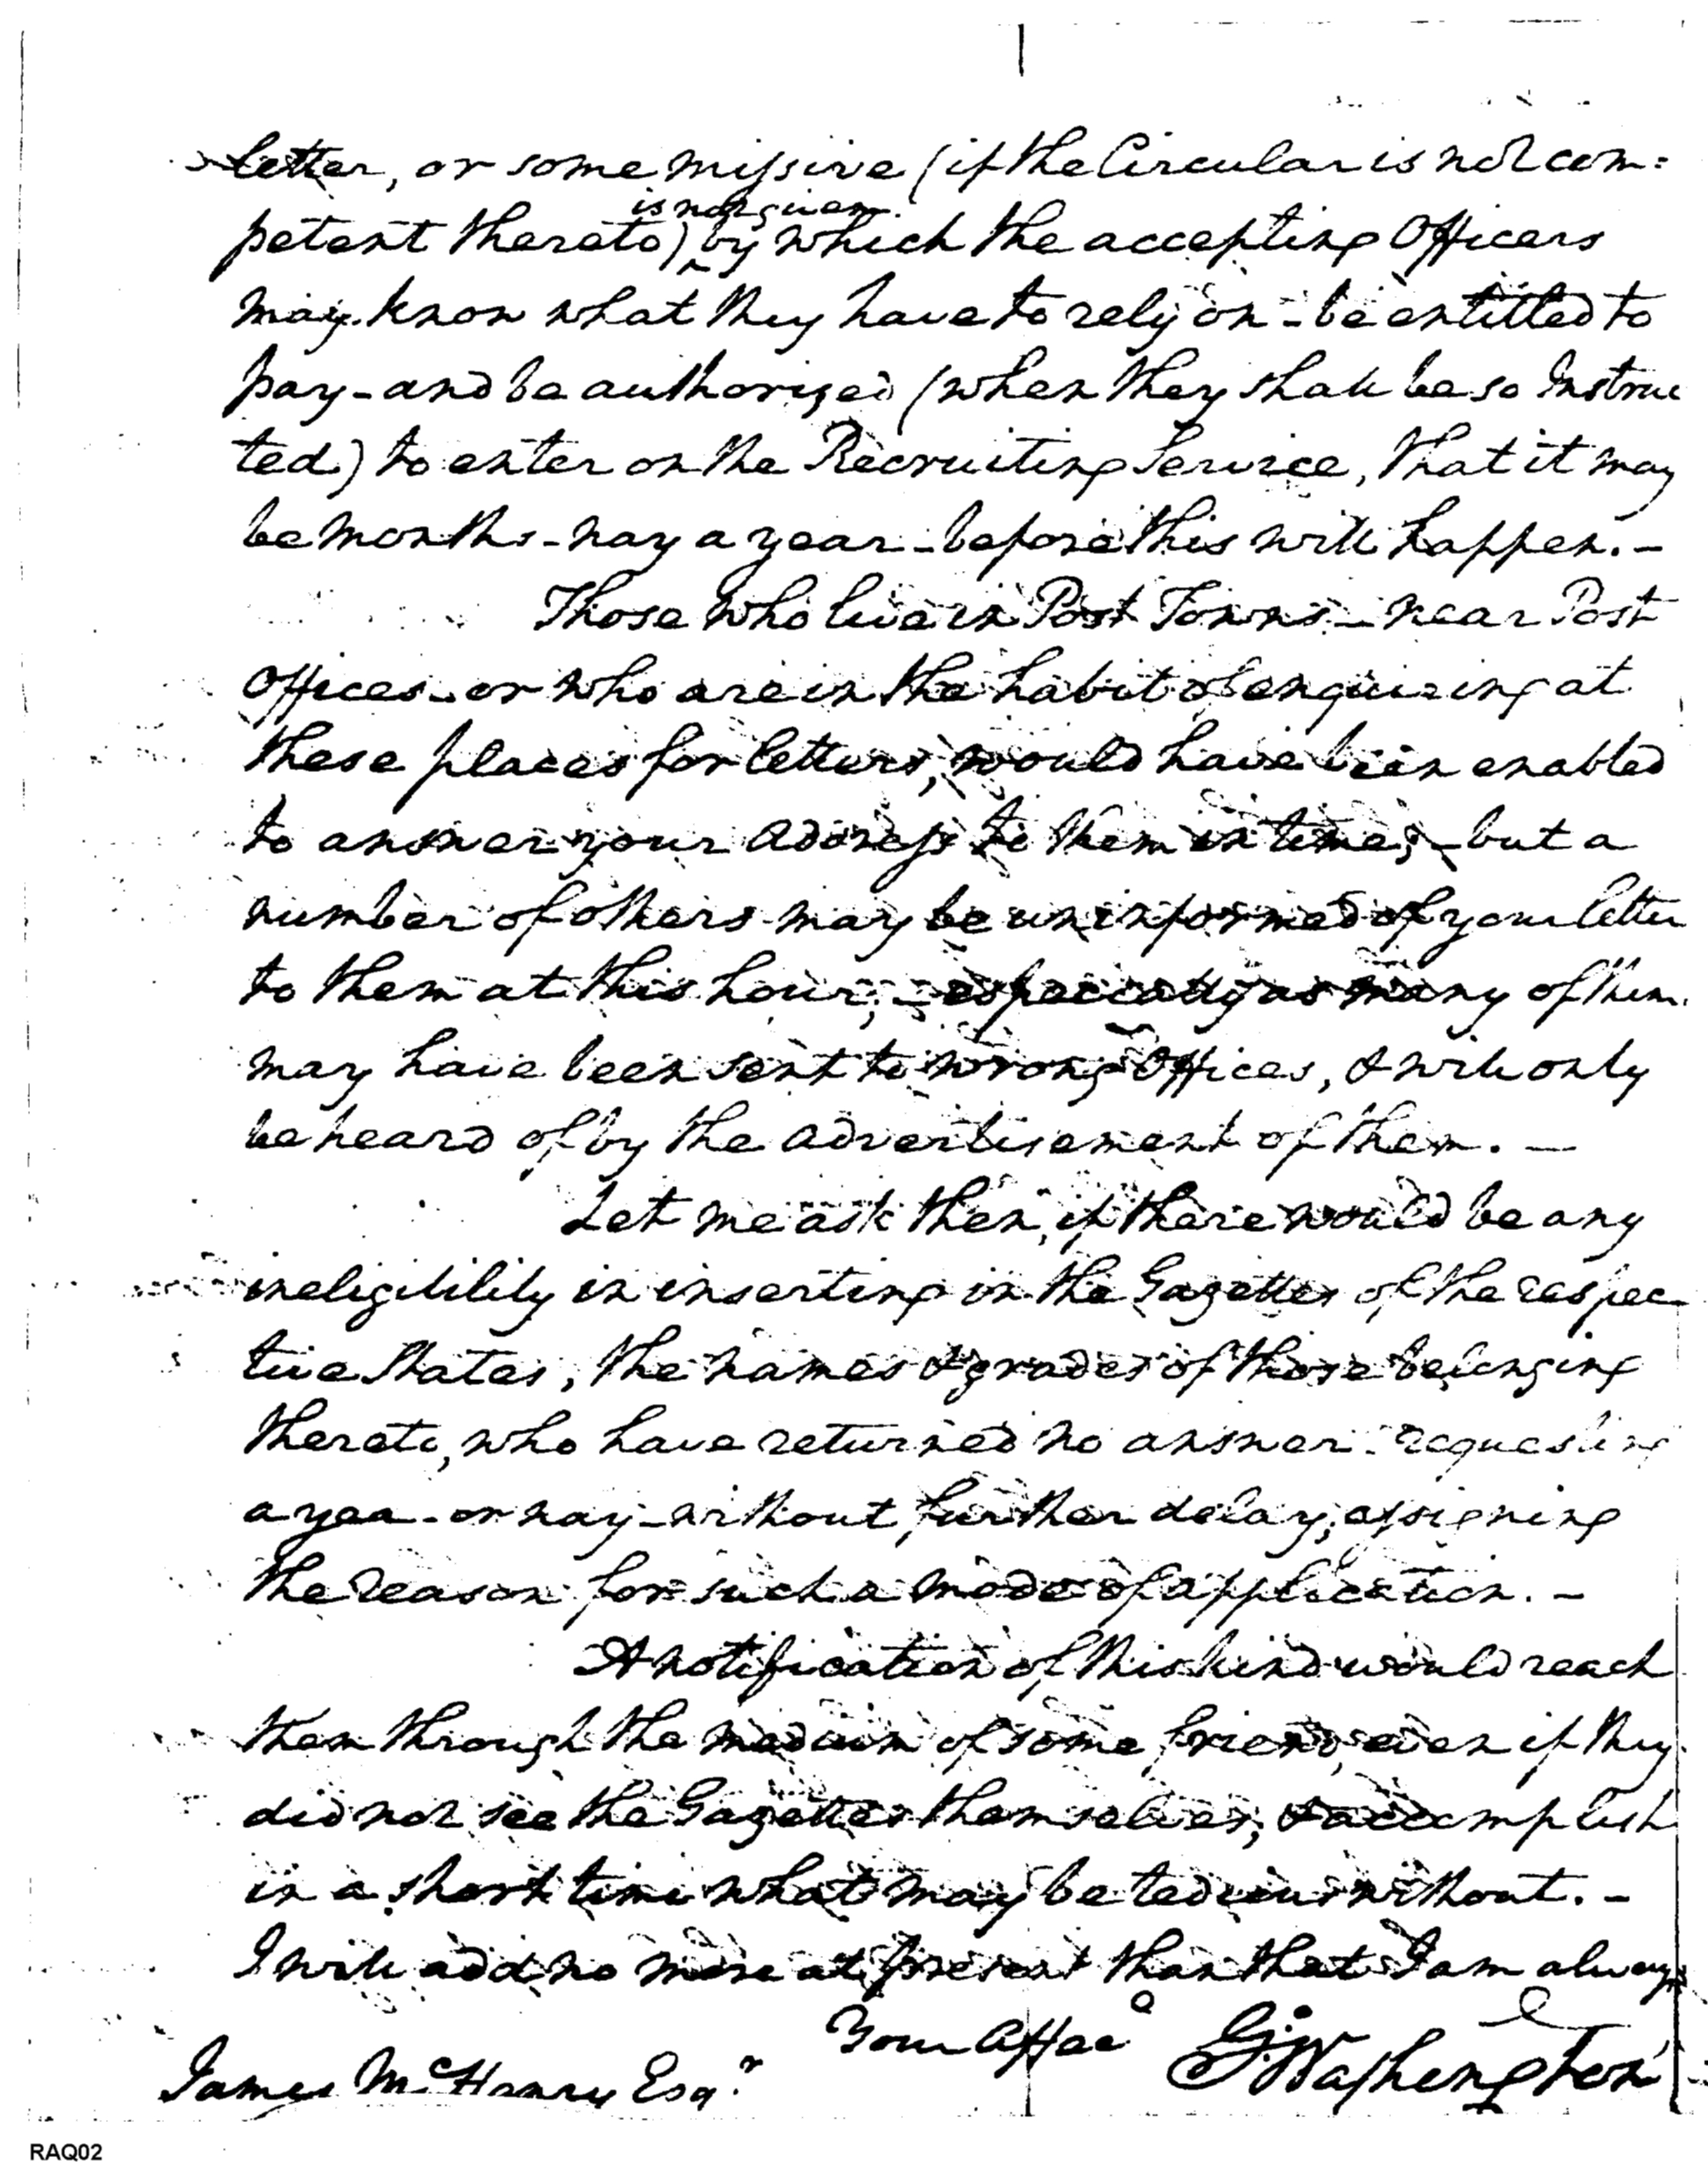 letter, or some missive (if the Circular is not com=
is not given
petent thereto) ^ by which the accepting Officers
may know what they have to rely on - be entitled to
pay - and be authorized (when they shall be so Instruc
ted) to enter on the Recruiting Service, that it may
be months - nay a year - before this will happen. -
Those who live in Post Towns - near Post
Offices - or who are in the habit of enquiring at
these places for letters, would have been enabled
to answer your address to them in time; - but a
number of others may be uninformed of your letter
to them at this hour; - especially as many of them
may have been sent to wrong Offices, & will only
be heard of by the advertisement of them. -
Let me ask then, if there would be any
ineligibility in inserting in the Gazettes of the respec-
tive States, the names & grades of those belonging
thereto, who have returned no answer: requesting
a yea - or nay - without further delay; assigning
the reason for such a mode of application. -
A notification of this kind would reach
them through the medium of some friend, even if they
did not see the Gazettes themselves; & accomplish
in a short time what may be tedious without. -
I will add no more at present than that I am always
Your Affece
G: Washington
James McHenry Esqr.
RAQ02